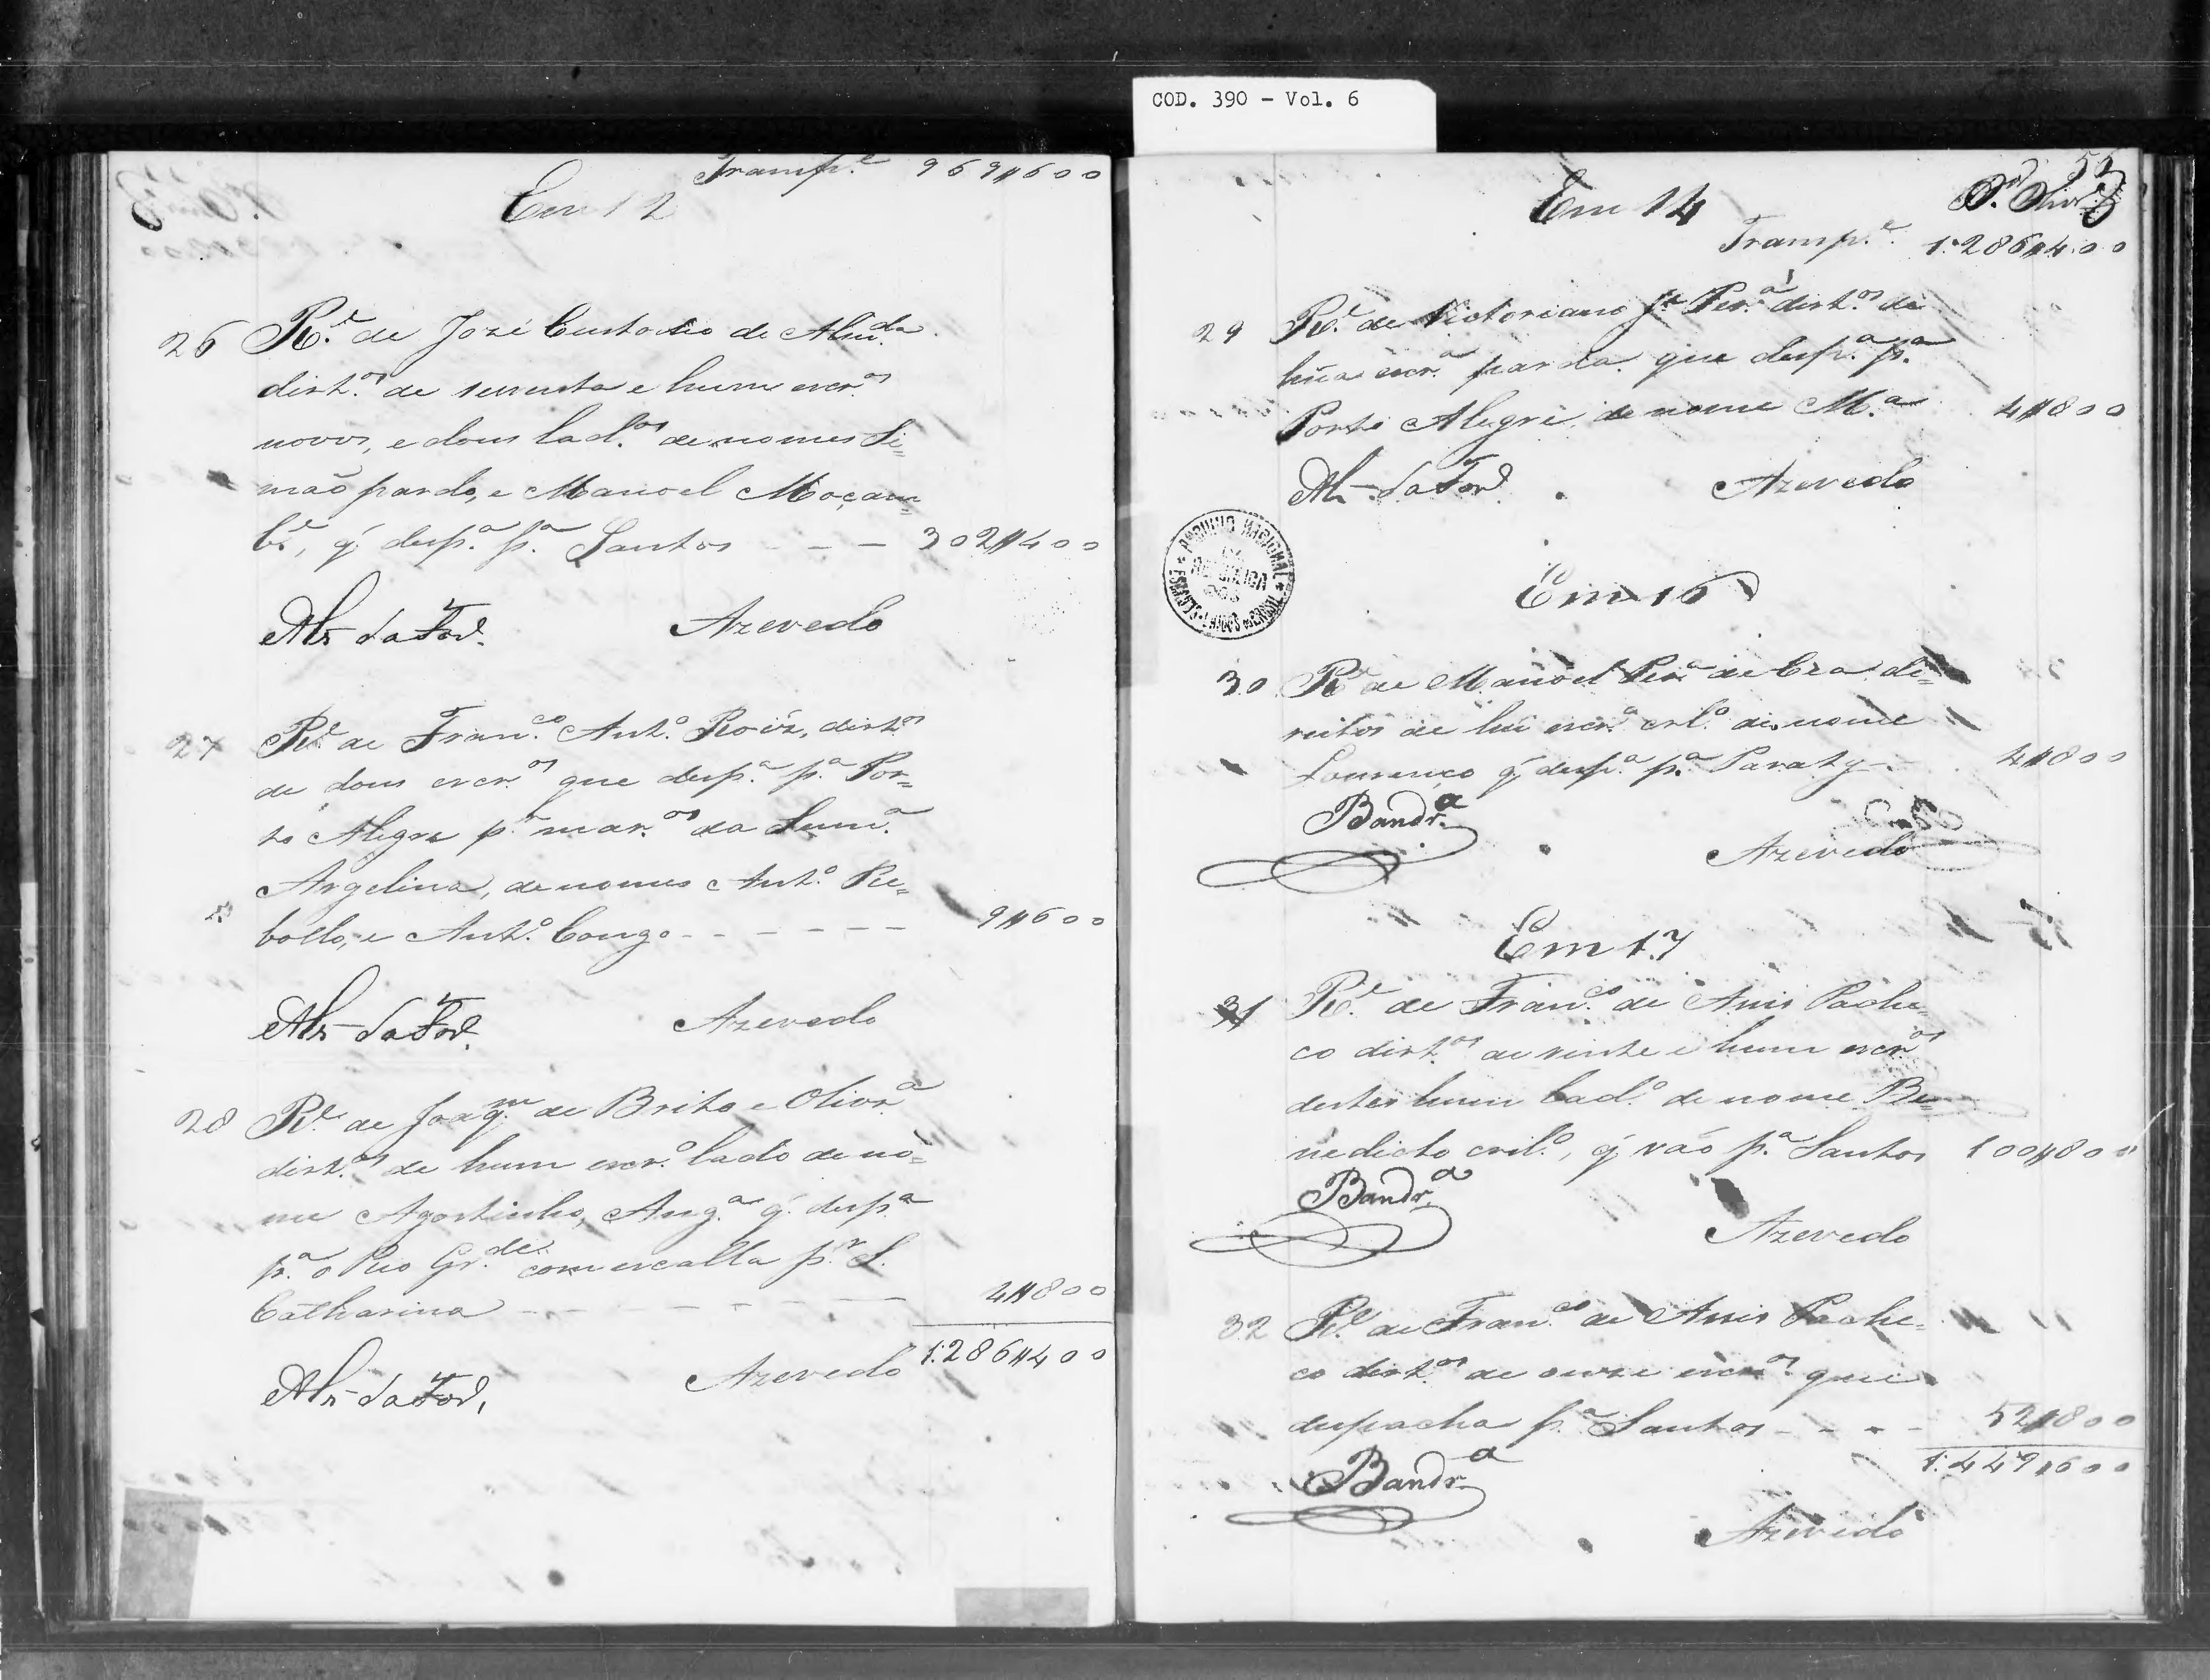 COD. 390 - Vol. 6
Transp.e 969$600
Em 12
26 R.e de José Custodio de Almd.a
dirt.os de secenta e hum escr.os
novos, e dous lad.os de nomes Si=
mão pardo, e Manoel Moçam=
be, q' desp.a p.a Santos - - - 302$400
Azevedo
27 R.e de Fran.co Ant.o Roiz, dirt.os
de dous escr.os que desp.a p.a Por=
to Alegre p.r mar.os da Sum.a
Argelina, de nomes Ant.o Re=
bollo, e Ant.o Congo - - - - - - 9$600
Azevedo
28 R.e de Joaq.m de Brito e Olivr.a
dirt.os de hum escr.o lad.o de no=
me Agostinho, Ang.a q' desp.a
p.a o Rio Gr.de com escalla p.r S.
Catharina - - - - - - - 4$800
1:286$400
Azevedo
55
Em 14
Transp.e 1:286$400
29 R.e de Victoriano J.e Per.a dirt.os de
hũa escr.a parda que desp.a p.a
Porto Alegre, de nome M.a 4$800
Azevedo
ARQUIVO NACIONAL
Em 16
30 R.e de Manoel Per.a de Cra di=
reitos de hũ escr.o crl.o de nome
Lourenço q' desp.a p.a Paraty - 4$800
Bandr.a
Azevedo
Em 17
31 R.e de Fran.co de Assis Pache=
co dirt.os de vinte e hum escr.os
destes hum lad.o de nome Be=
nedicto cril.o, q' vão p.a Santos 100$800
Bandr.a
Azevedo
32 R.e de Fran.co de Assis Pache=
co dirt.os de onze escr.os que
despacha p.a Santos - - - - 52$800
1:449$600
Bandr.a
Azevedo